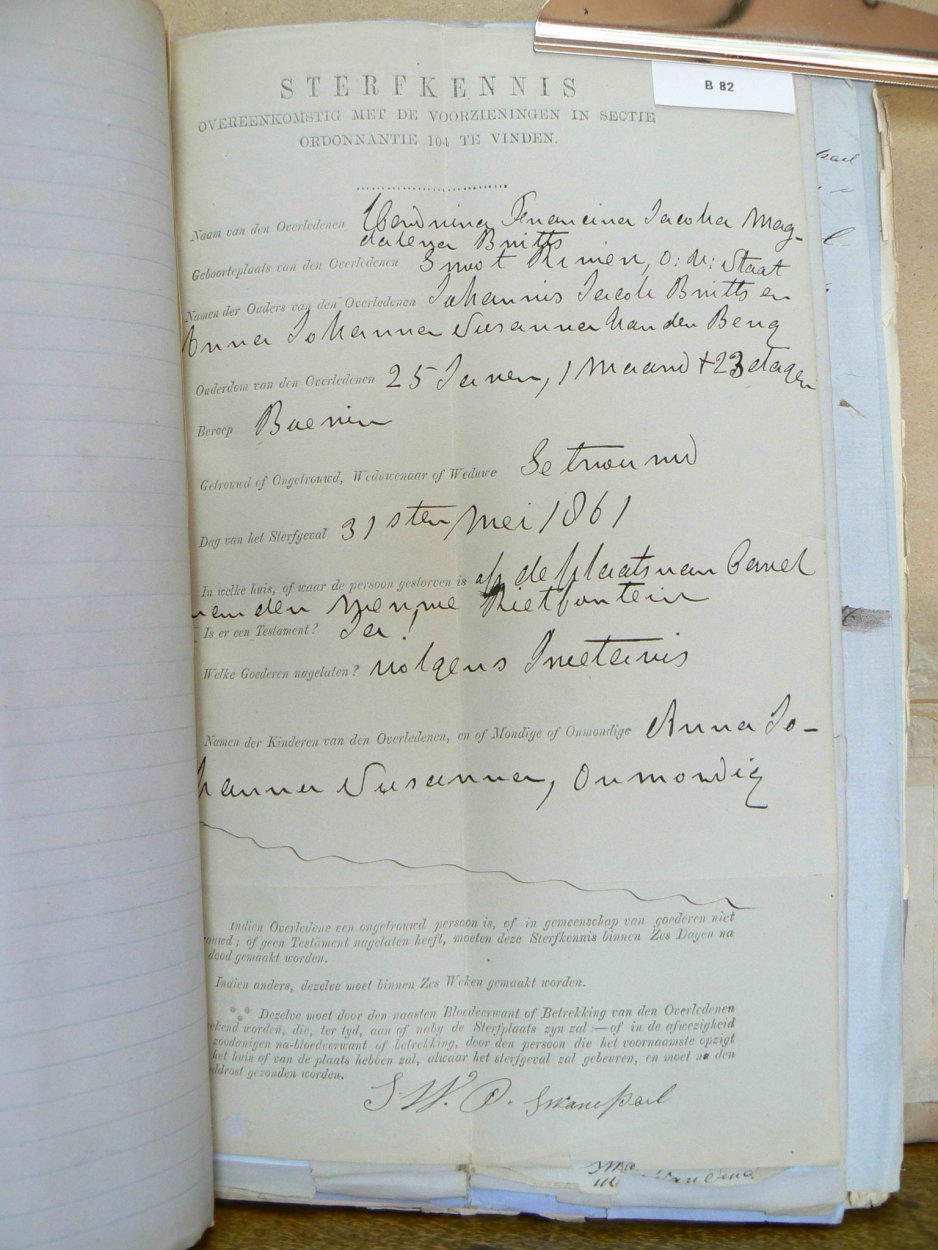 B 82
STERFKENNIS
OVEREENKOMSTIG MET DE VOORZIENINGEN IN SECTIE
ORDONNANTIE 104 TE VINDEN.
Naam van den Overledenen Francina Jacoba Mag-
dalena Britts
Geboorteplaats van den Overledenen Groot Rivier, O: V: Staat
Namen der Ouders van den Overledenen Johannis Jacob Britts en
Anna Johanna Susanna van den Berg
Ouderdom van den Overledenen 25 Jaren, 1 Maand + 23 dagen
Beroep Boerin
Getrouwd of Ongetrouwd, Weduwenaar of Weduwe Getrouwd
Dag van het Sterfgeval 31sten Mei 1861
In welke huis, of waar de persoon gestorven is op de plaats van Carel
van den Merwe Rietfontein
Is er een Testament? Ja!
Welke Goederen nagelaten? volgens Invetaris
Namen der Kinderen van den Overledenen, en of Mondige of Onmondige Anna Jo-
hanna Susanna, Onmondig
Indien Overledene een ongetrouwd persoon is, of in gemeenschap van goederen niet
ouwd; of geen Testament nagelaten heeft, moeten deze Sterfkennis binnen Zes Dagen na
dood gemaakt worden.
Indien anders, dezelve moet binnen Zes Weken gemaakt worden.
Dezelve moet door den naasten Bloedverwant of Betrekking van den Overledenen
ekend worden, die, ter tyd, aan of naby de Sterfplaats zyn zal:—of in de afwezigheid
zoodanigen na-bloedverwant of betrekking, door den persoon die het voornaamste opzigt
het huis of van de plaats hebben zal, alwaar het sterfgeval zal gebeuren, en moet na den
ddrost gezonden worden.
S. W. P. Swanepoel